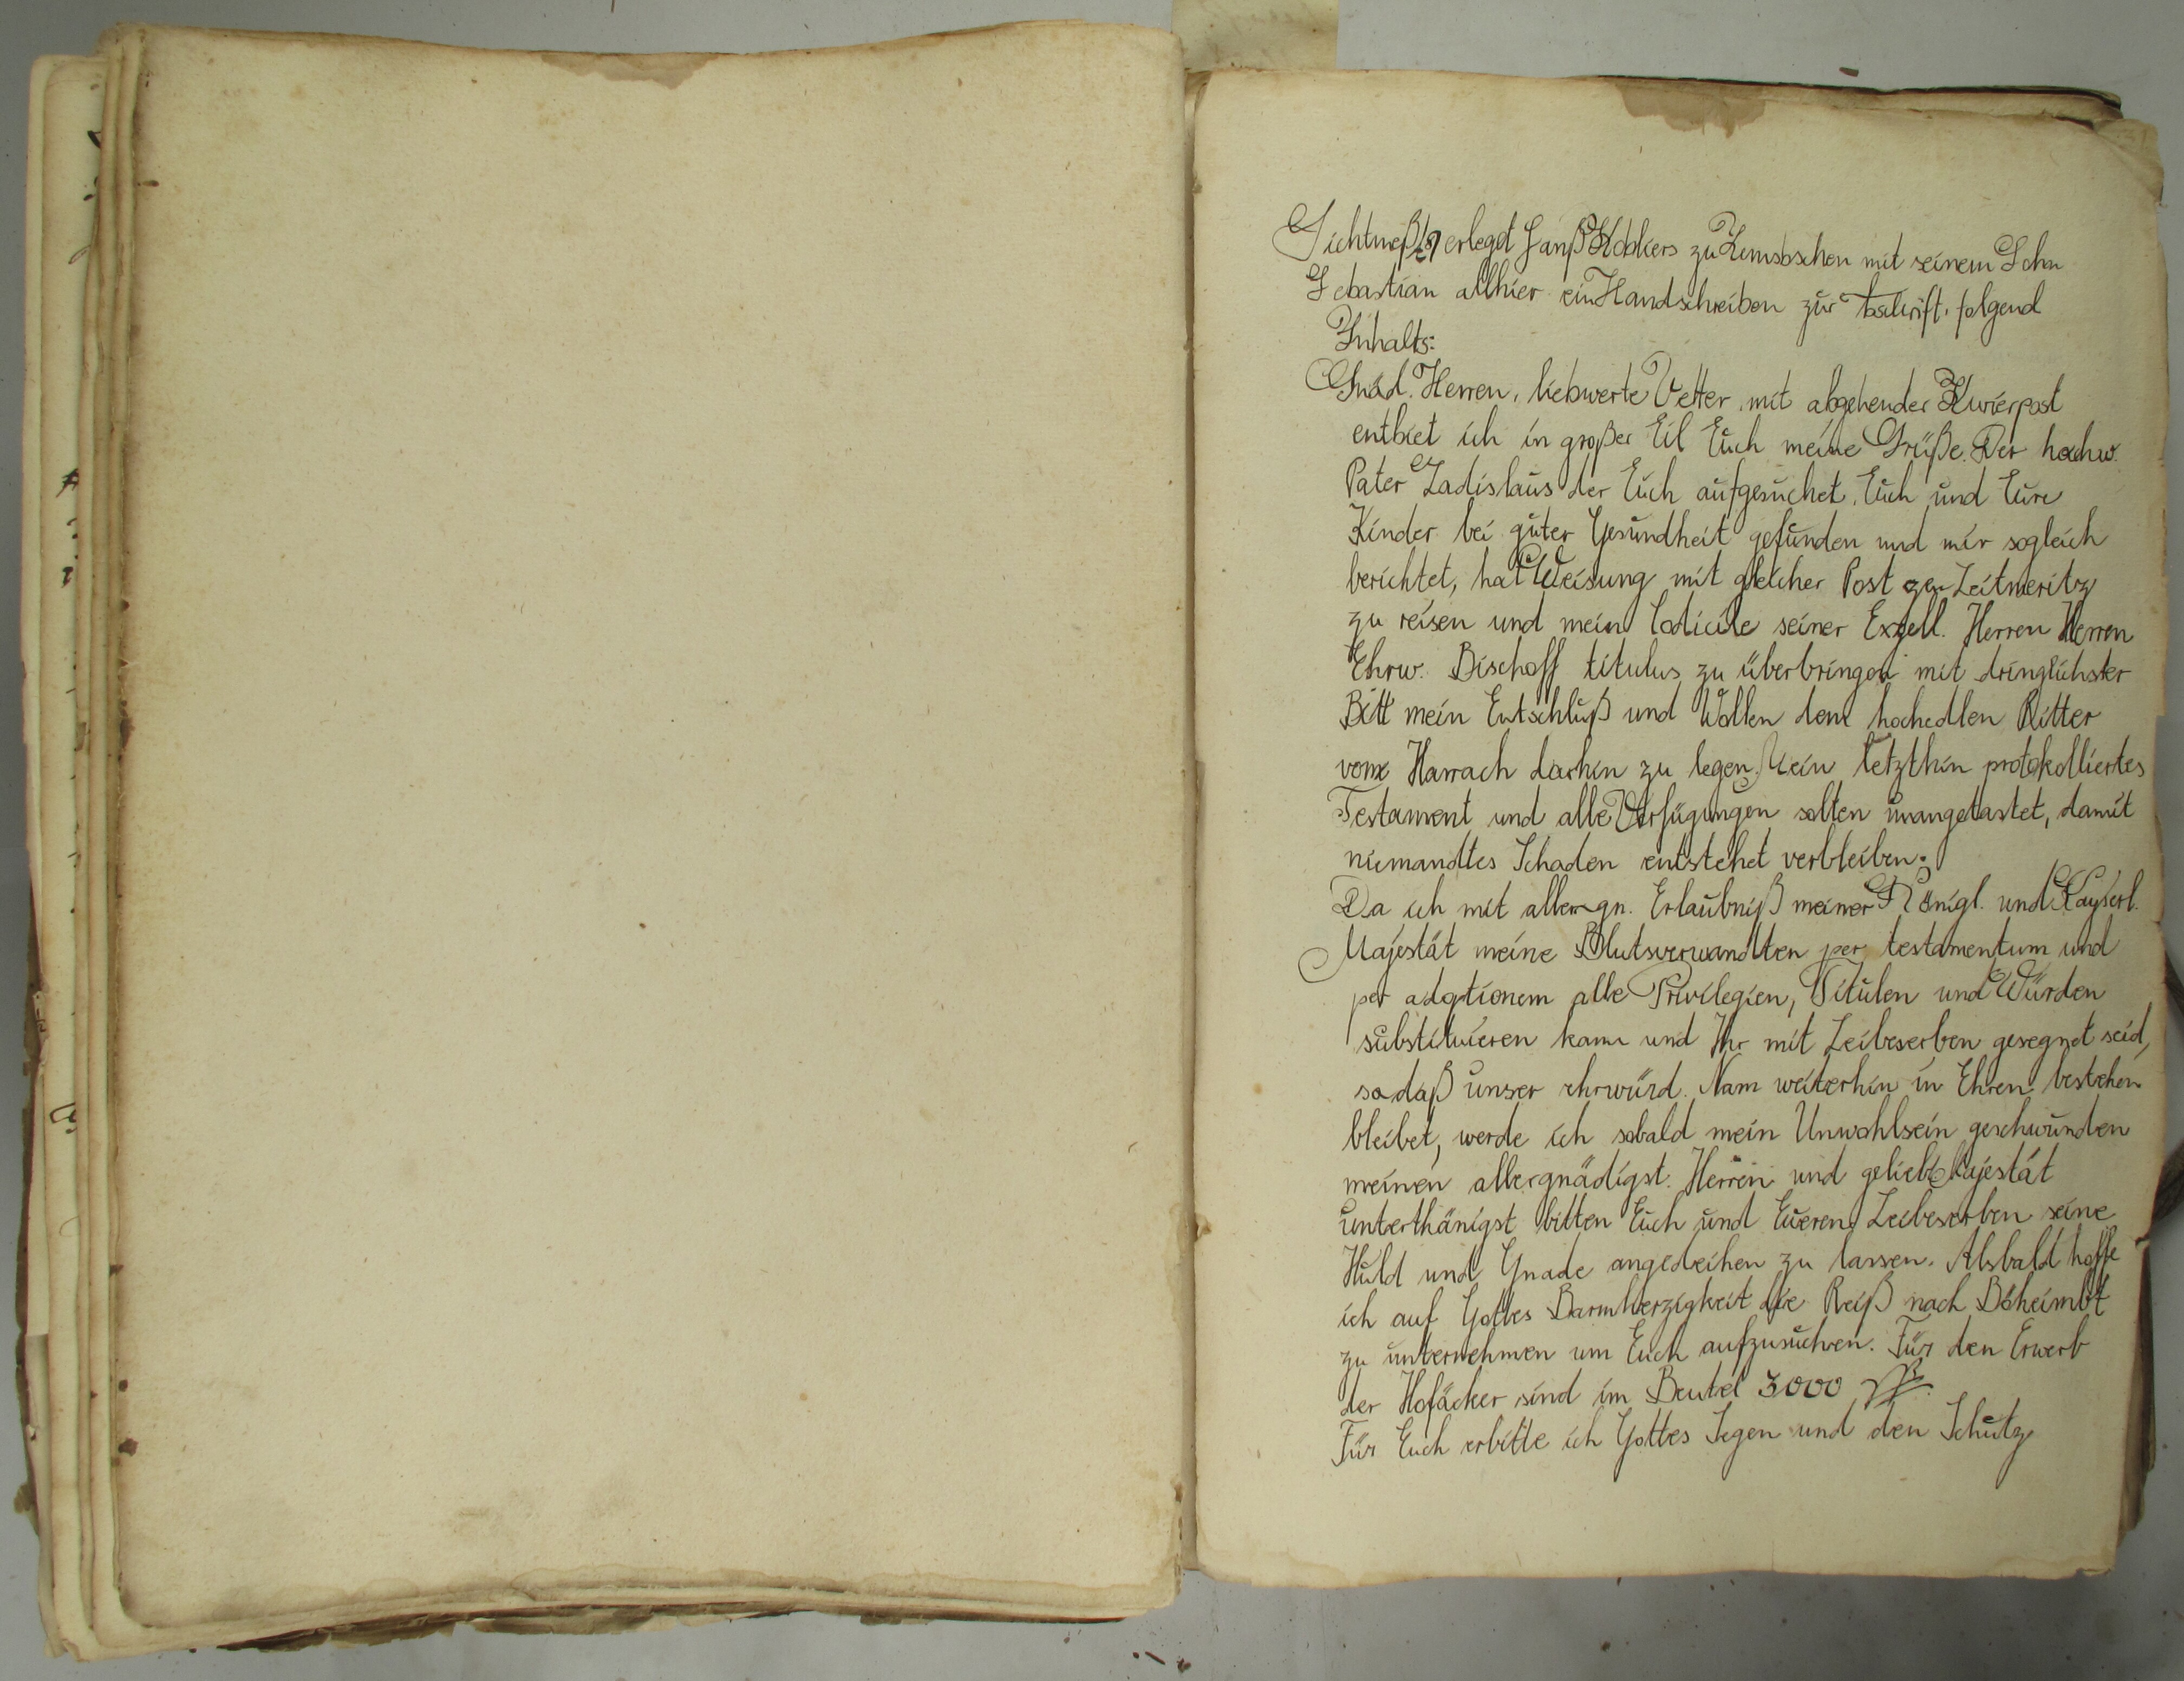 Lichtmeß erlegt Hanß Kobliers zu mit seinem Sohn
Sebastian allhier ein Handschreiben zur folgend
Inhalts:
Gnäd. Herren, liebwerte Vetter, mit abgehender Kurierpost
entbiet ich in großer Eil Euch meine Grüße. Der hochw.
Pater Ladislaus der Euch aufgesuchet, Euch und Eure
Kinder bei guter Gesundheit gefunden und mir sogleich
berichtet, hat Weisung mit gleicher Post gen Leitmeritz
zu reisen und mein Codicile seiner Exzell. Herren Herren
Ehrw. Bischoff titulus zu überbringen mit dringlichster
Bitt mein Entschluß und Wollen dem hochedlen Ritter
vom Harrach darhin zu legen. Mein letzthin protokolliertes
Testament und alle Verfügungen solten unangetastet, damit
niemandtes Schaden entstehet verbleiben.
Da ich mit allergn. Erlaubniß meiner Königl. und Kayserl.
Majestät meine Blutsverwandten per testamentum und
per adoptionem alle Privilegien, Titulen und Würden
substituieren kann und Ihr mit Leibeserben gesegnet seid,
sodaß unser ehrwürd. Nam weiterhin in Ehren bestehen
bleibet, werde ich sobald mein Unwohlsein geschwunden
meinen allergnädigst. Herren und geliebt Majestät
unterthänigst bitten Euch und Eueren Leibeserben seine
Huld und Gnade angedeihen zu lassen. Alsbald hoffe
ich auf Gottes Barmherzigkeit die Reiß nach Böheimbt
zu unternehmen um Euch aufzusuchen. Für den Erwerb
der Hofäcker sind im Beutel 3000
Für Euch erbitte ich Gottes Segen und den Schutz